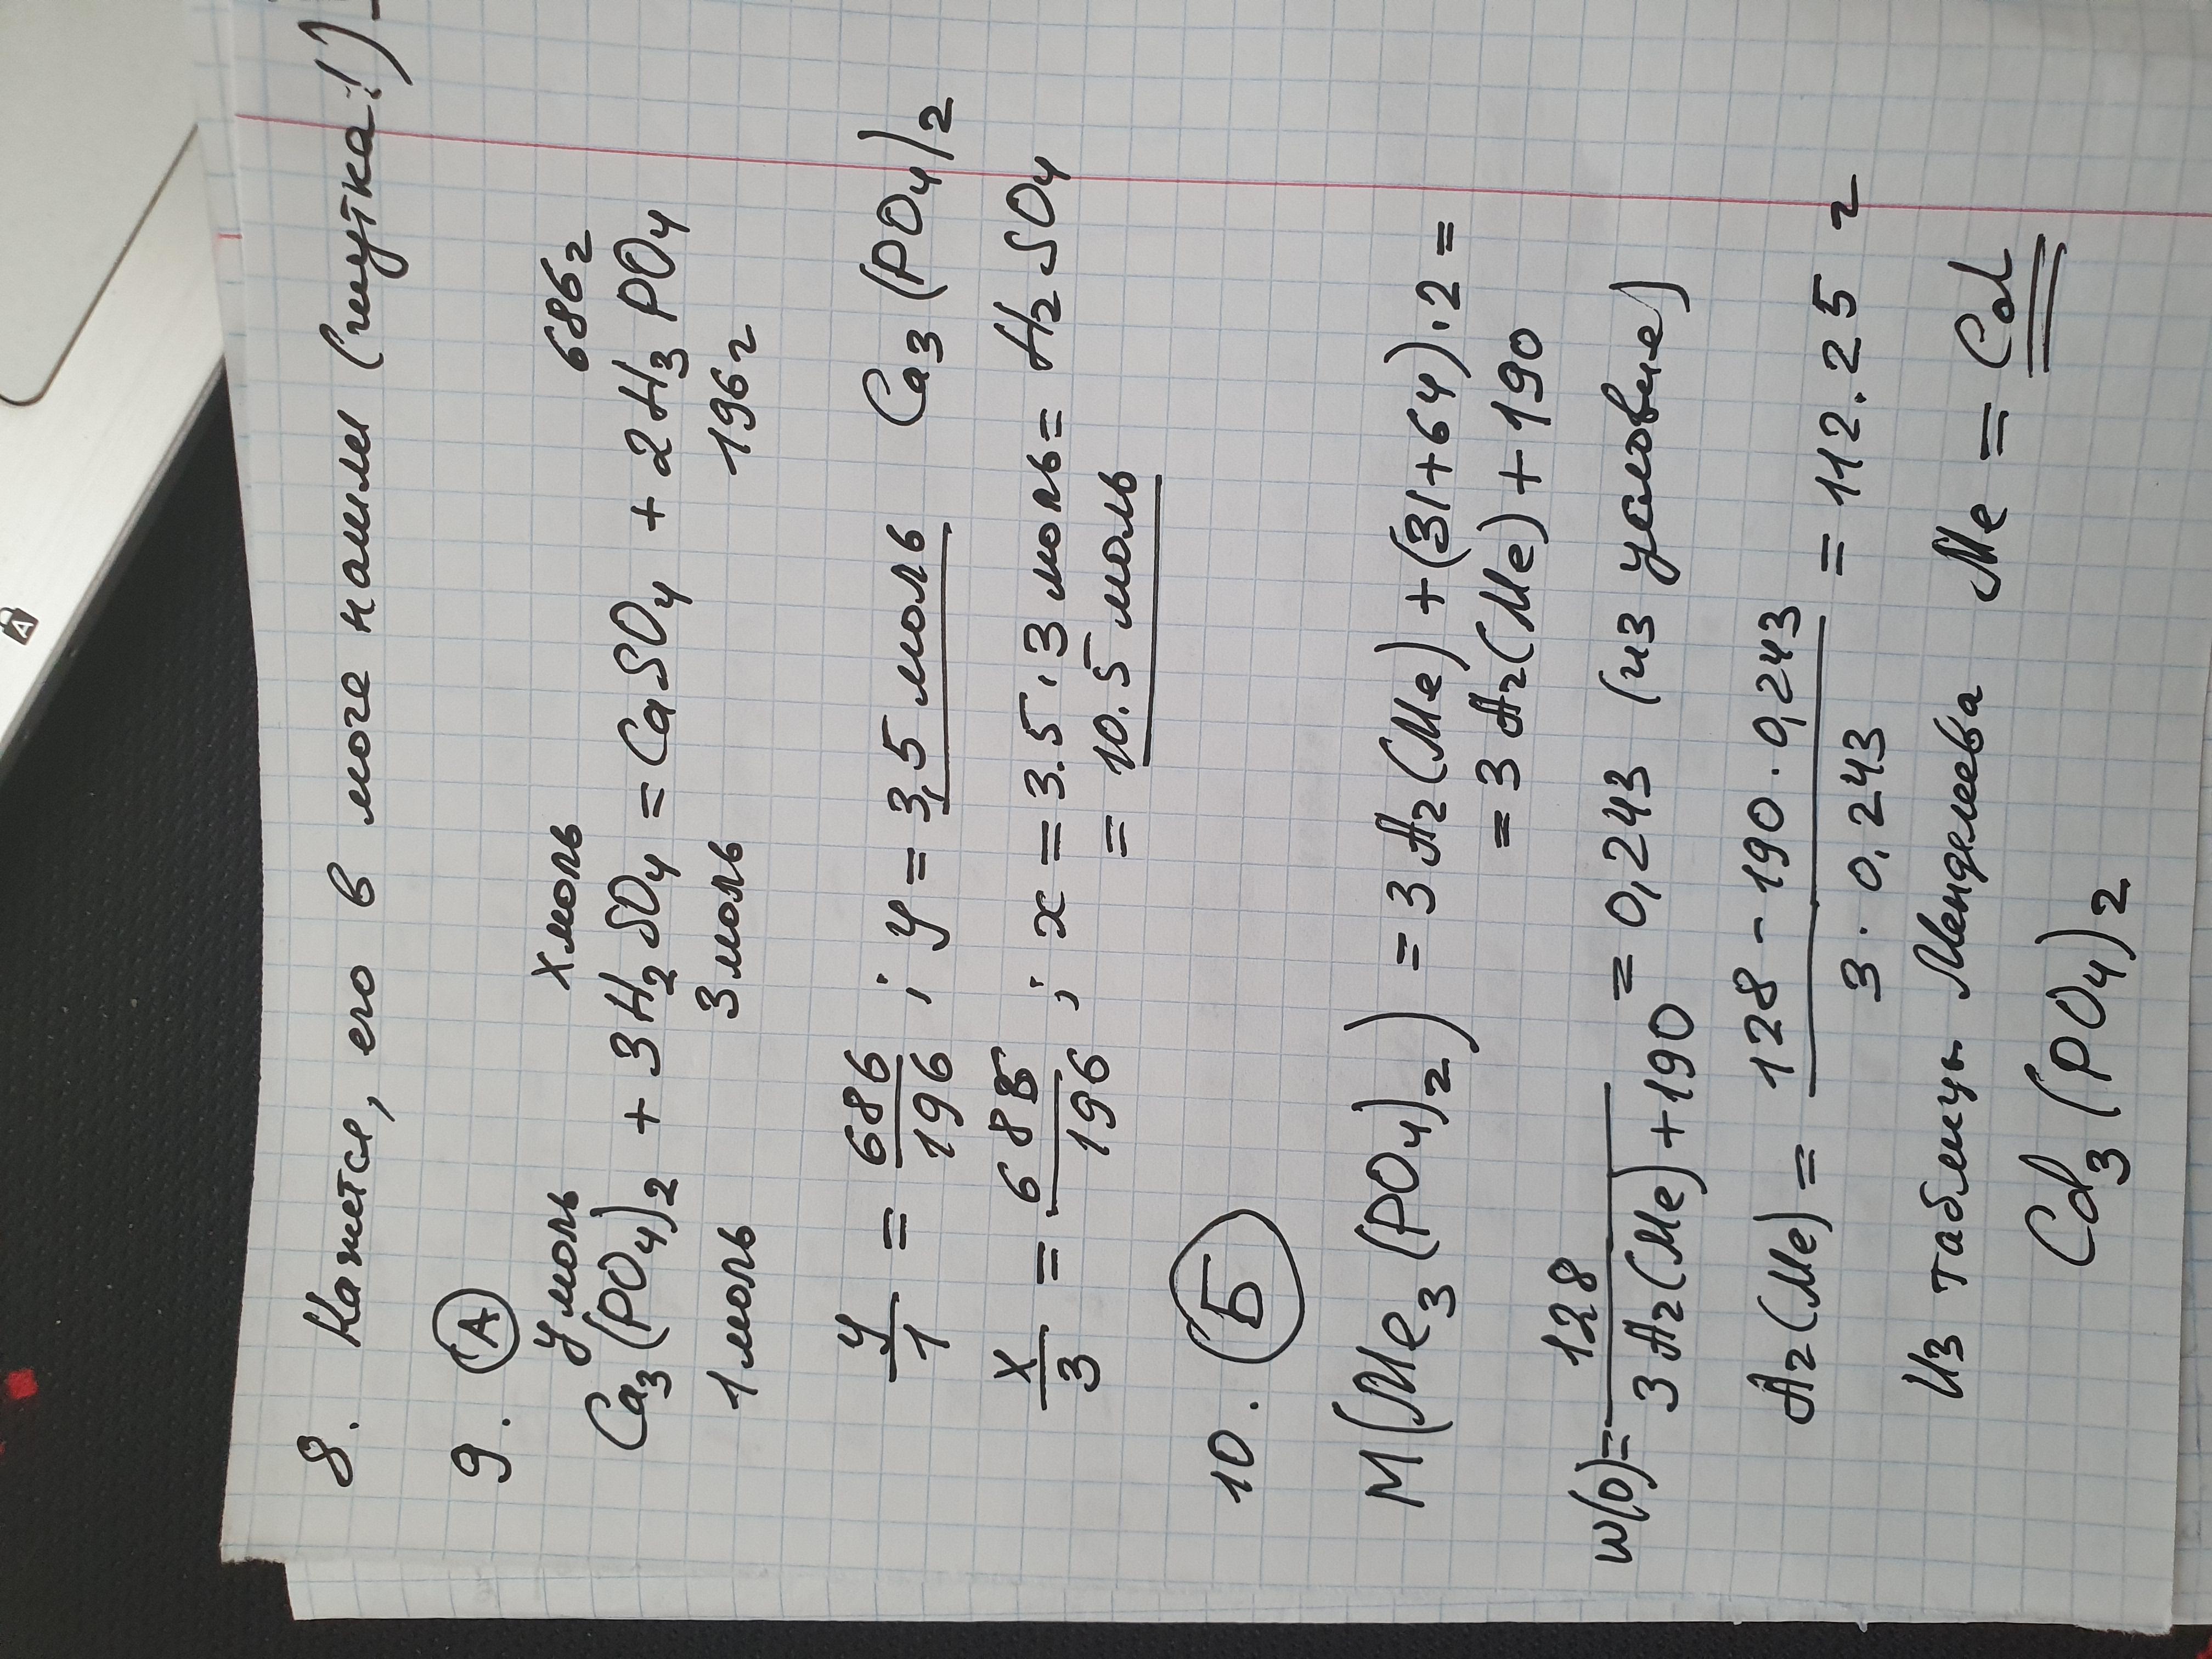 8. Кажется, его в моче нашли (шутка!)
9. А
y моль x моль 686 г
Ca3(PO4)2 + 3H2SO4 = CaSO4 + 2H3PO4
1 моль 3 моль 196 г
y/1 = 686/196 ; y = 3,5 моль Ca3(PO4)2
x/3 = 686/196 ; x = 3.5 · 3 моль = H2SO4
= 10.5 моль
10. Б
M(Me3(PO4)2) = 3Ar(Me) + (31+64)·2 =
= 3Ar(Me) + 190
w(O) = 128/(3Ar(Me)+190) = 0,243 (из условие)
Ar(Me) = (128 - 190·0,243)/(3·0,243) = 112.25 г
Из таблицы Менделеева Me = Cd
Cd3(PO4)2
A